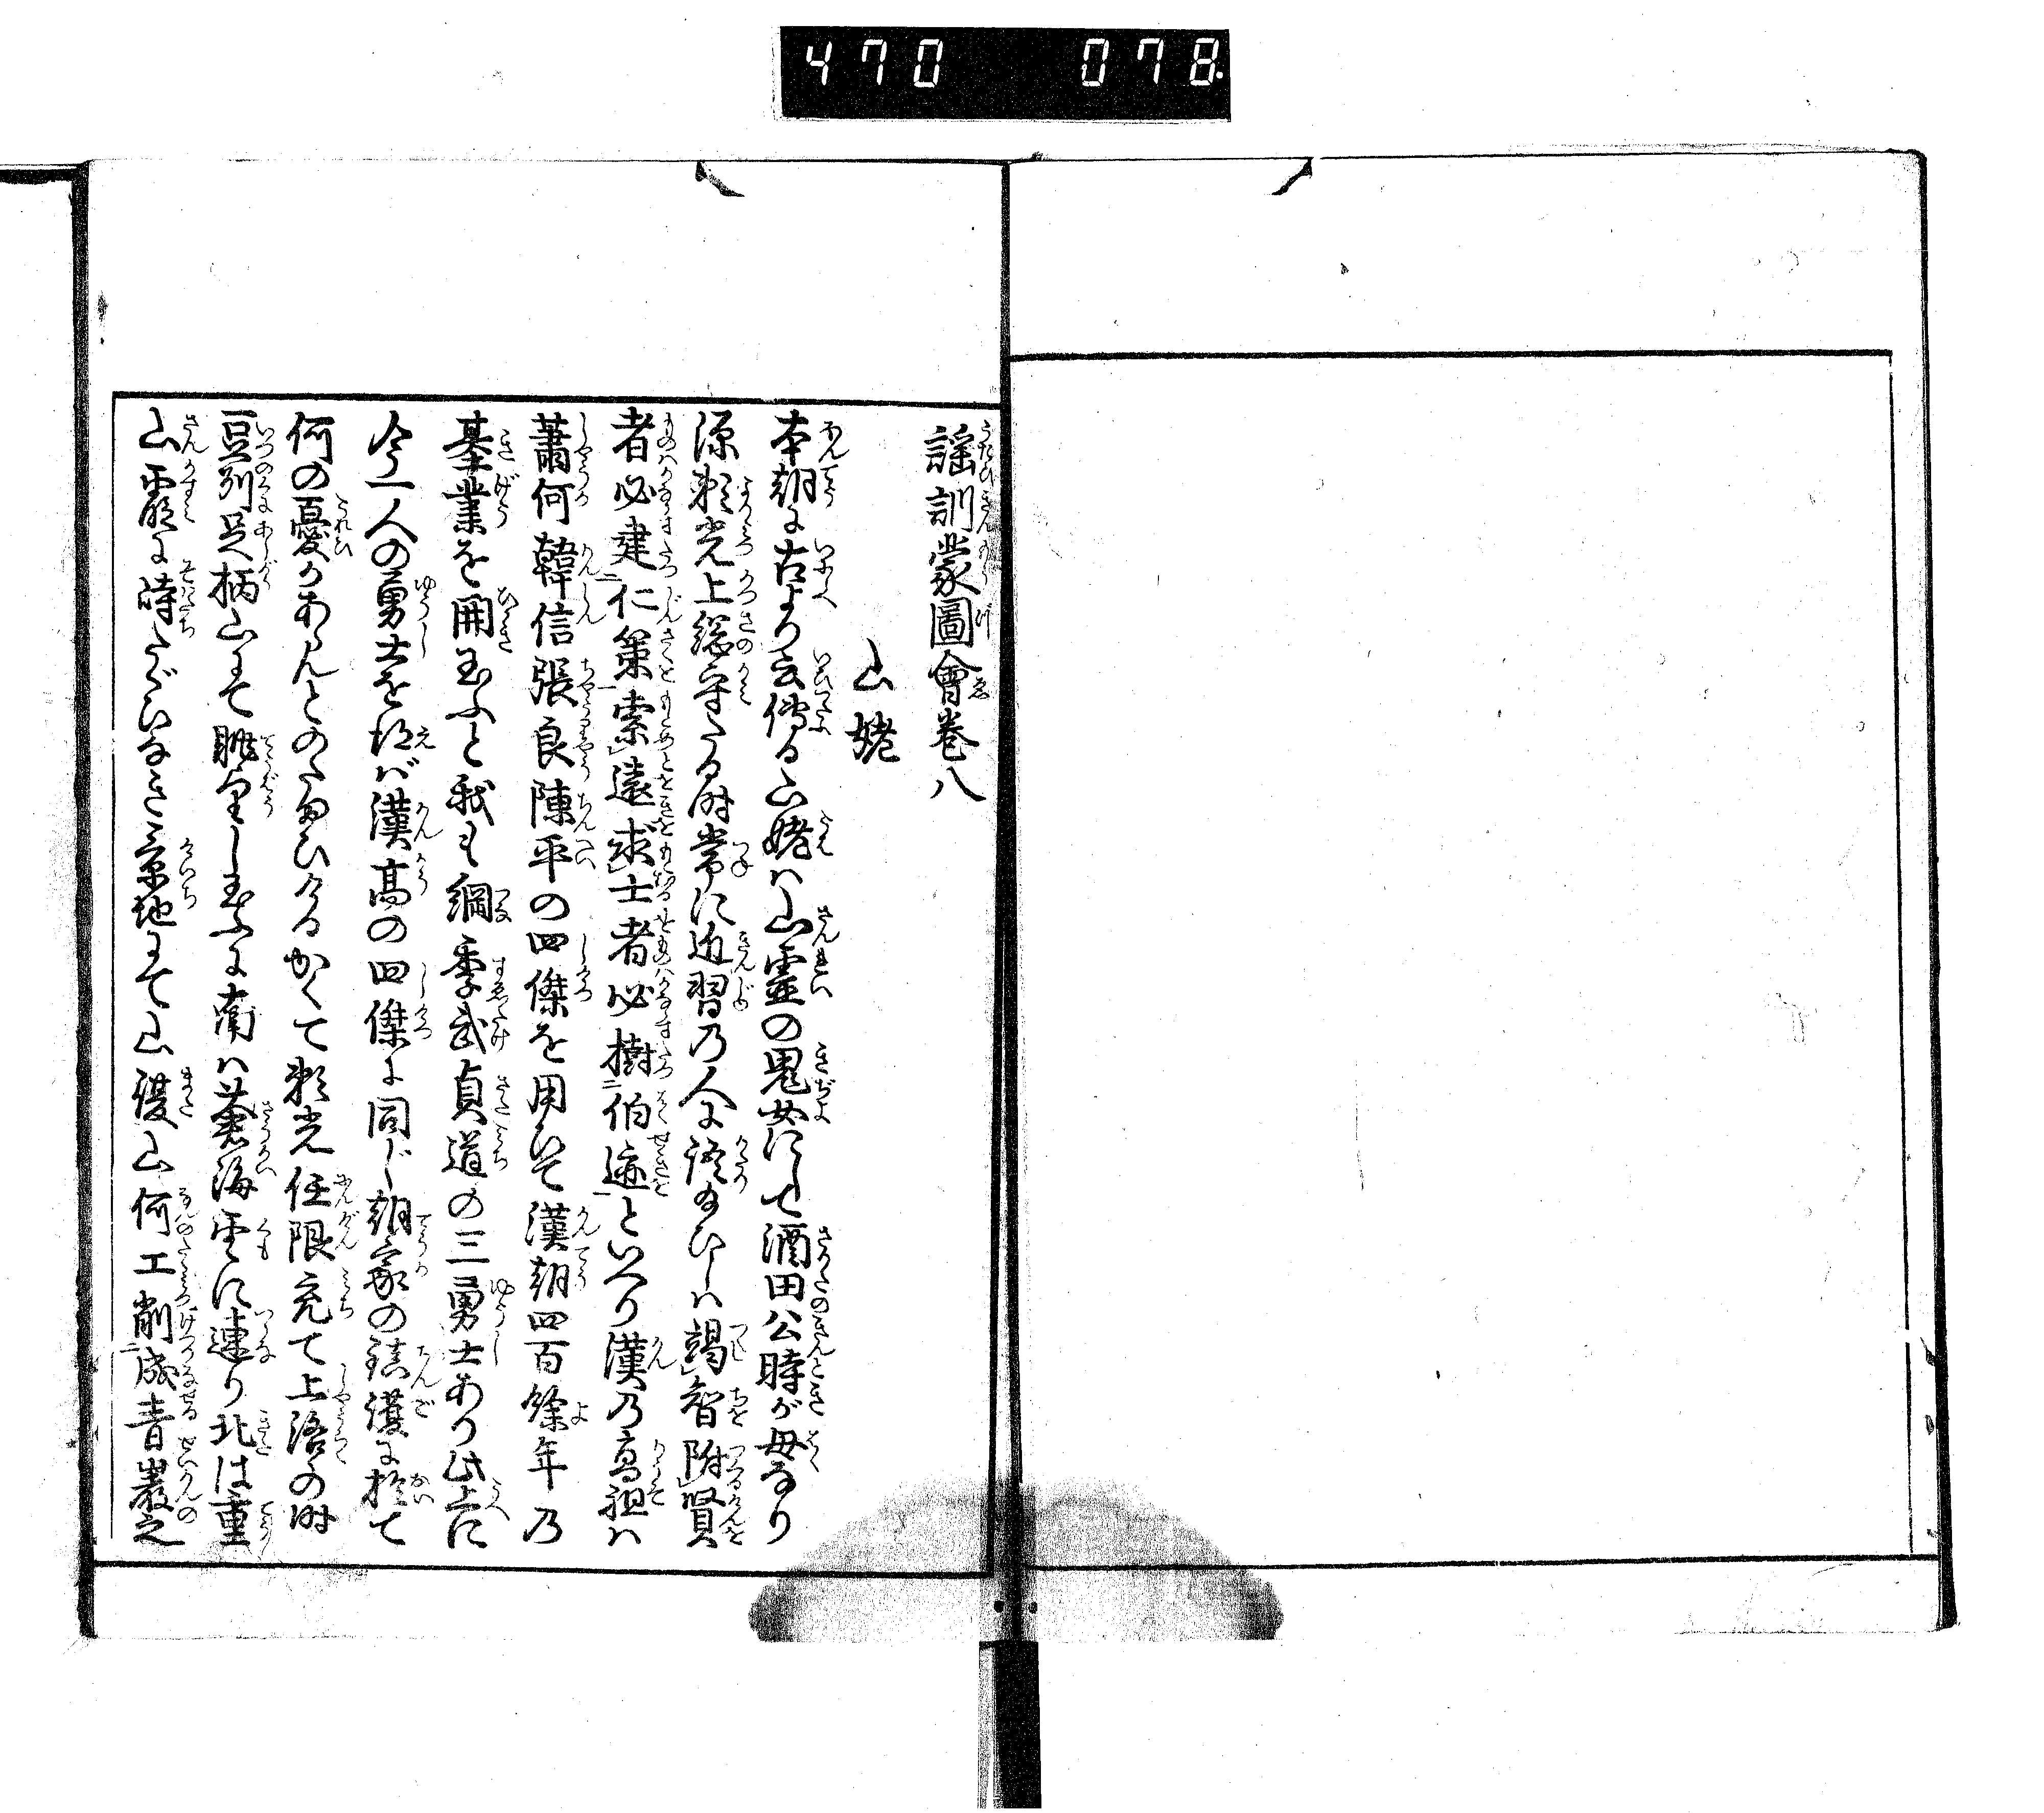 470 078
謡訓蒙圖會巻八
山姥
本朝に古より云傳る山姥ハ山靈の鬼女にして酒田公時が母なり
源頼光上総守たる時常に近習乃人に語給ひしハ竭智附賢
者必建仁策索遠求士者必樹伯迹といへり漢乃高祖ハ
蕭何韓信張良陳平の四傑を用ひて漢朝四百餘年乃
基業を開玉ふと我も綱季武貞道の三勇士あり此上に
今一人の勇士を得バ漢高の四傑に同じ朝家の鎮護に於て
何の憂かあらんとのたまひける かくて頼光任限充て上洛の時
豆州足柄山にて眺望し玉ふに南ハ蒼海雲に連り北は重
山霞に峙たぐひなき景地にて山復山何工削成青巖之